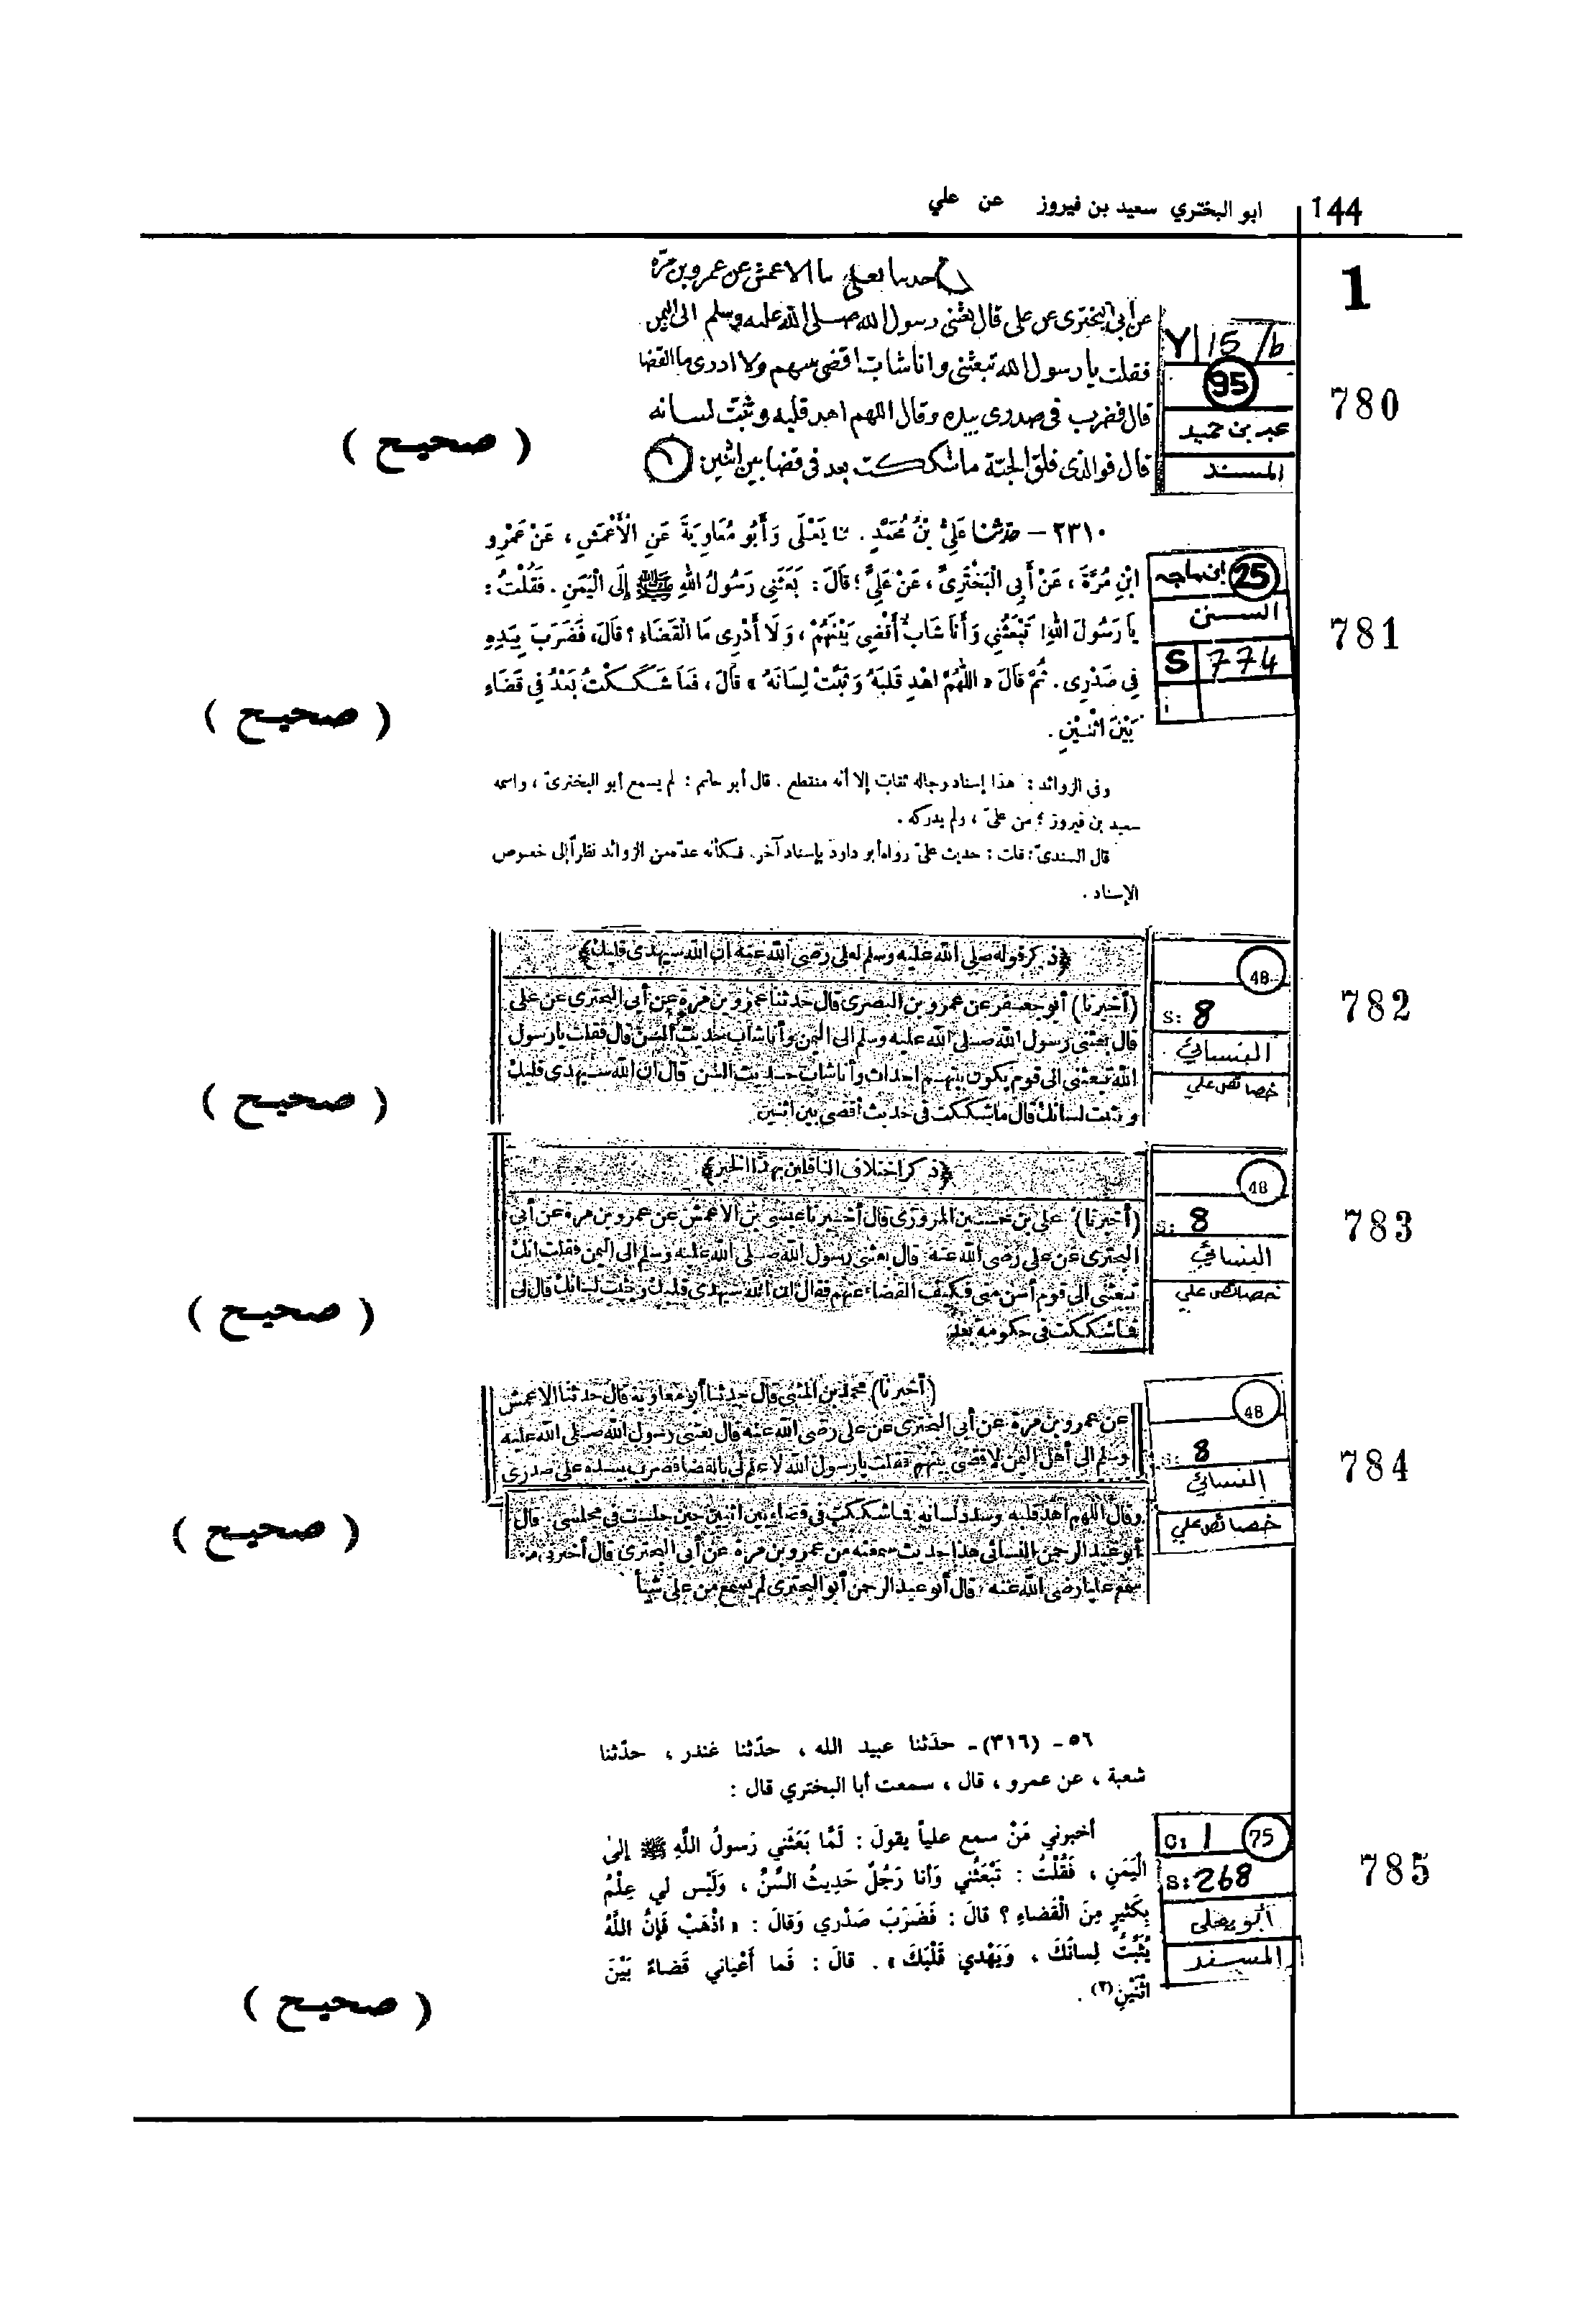 144
ابو البختري سعيد بن فيروز عن علي
1
حدثنا يعلى ما الاعمش عن عمرو بن مرّة
عن أبى البخترى عن على قال بعثنى رسول الله صلى الله عليه وسلم الى اليمن
فقلت يا رسول الله تبعثنى وانا شاب اقضى بينهم ولا ادرى ما القضا
قال فضرب فى صدرى بيده وقال اللهم اهد قلبه وثبّت لسانه
قال فوالذى فلق الحبّة ما شككت بعد فى قضا بين اثنين
Y 15/b
95
عبد بن حميد
المسند
780
( صحيح )
٢٣١٠ – حدّثنا عَلِيُّ بْنُ مُحَمَّدٍ . ثنا يَعْلَى وَأَبُو مُعَاوِيَةَ عَنِ الْأَعْمَشِ ، عَنْ عَمْرِو
ابْنِ مُرَّةَ ، عَنْ أَبِى الْبَخْتَرِىِّ ، عَنْ عَلِىٍّ ؛ قَالَ : بَعَثَنِى رَسُولُ اللهِ ﷺ إِلَى الْيَمَنِ . فَقُلْتُ :
يَا رَسُولَ اللهِ! تَبْعَثُنِى وَأَنَا شَابٌّ أَقْضِى بَيْنَهُمْ ، وَلَا أَدْرِى مَا الْقَضَاءِ ؟ قَالَ ، فَضَرَبَ بِيَدِهِ
فِى صَدْرِى . ثُمَّ قَالَ « اللَّهُمَّ اهْدِ قَلْبَهُ وَثَبِّتْ لِسَانَهُ » قَالَ ، فَمَا شَكَكْتُ بَعْدُ فِى قَضَاءٍ
بَيْنَ اثْنَيْنِ .
25 ابن ماجه
السنن
S 774
781
( صحيح )
وفى الزوائد : هذا إسناد رجاله ثقات إلا أنه منقطع . قال أبو حاتم : لم يسمع أبو البخترىّ ، واسمه
سعيد بن فيروز ؛ من علىّ ، ولم يدركه .
قال السندىّ : قلت : حديث علىّ رواه أبو داود بإسناد آخر. فكأنه عدّه من الزوائد نظراً إلى خصوص
الإسناد .
﴿ذكر قوله صلى الله عليه وسلم لعلى رضى الله عنه ان الله سيهدى قلبك﴾
(أخبرنا) أبو جعفر عن عمرو بن البصرى قال حدثنا عمرو بن مرة عن أبى البخترى عن على
قال بعثنى رسول الله صلى الله عليه وسلم الى اليمن وأنا شاب حديث السن قال فقلت يا رسول
الله تبعثنى الى قوم يكون بينهم احداث وأنا شاب حديث السن قال ان الله سيهدى قلبك
ويثبت لسانك قال ما شككت فى حديث أقضى بين اثنين
48
S: 8
النسائي
خصائص علي
782
( صحيح )
﴿ذكر اختلاف الناقلين بهذا الخبر﴾
(أخبرنا) على بن حسين المروزى قال أخبرنا عيسى بن الاعمش عن عمرو بن مرة عن أبى
البخترى عن على رضى الله عنه قال بعثنى رسول الله صلى الله عليه وسلم الى اليمن فقلت انك
تبعثنى الى قوم أسن منى فكيف القضاء عنهم فقال ان الله سيهدى قلبك ويثبت لسانك قال لى
فما شككت فى حكومة بعد
48
S: 8
النسائي
خصائص علي
783
( صحيح )
(أخبرنا) محمد بن المثنى قال حدثنا أبو معاوية قال حدثنا الاعمش
عن عمرو بن مرة عن أبى البخترى عن على رضى الله عنه قال بعثنى رسول الله صلى الله عليه
وسلم الى أهل اليمن لاقضى بينهم فقلت يا رسول الله لا علم لى بالقضا فضرب بيده على صدرى
وقال اللهم اهد قلبه وسدد لسانه فما شككت فى قضاء بين اثنين حين جلست فى مجلسى قال
أبو عبد الرحمن النسائى هذا حديث سمعته من عمرو بن مرة عن أبى البخترى قال أخبرنى من
سمع عليا رضى الله عنه قال أبو عبد الرحمن أبو البخترى لم يسمع من على شيأ
48
8
النسائي
خصائص علي
784
( صحيح )
٥٦ - (٣١٦) - حدّثنا عبيد الله ، حدّثنا غندر ، حدّثنا
شعبة ، عن عمرو ، قال ، سمعت أبا البختري قال :
أخبرني مَنْ سمع علياً يقول : لَمَّا بَعَثَني رَسولُ اللَّهِ ﷺ إلىٰ
الْيَمَنِ ، فَقُلْتُ : تَبْعَثُني وَأنا رَجُلٌ حَديثُ السِّنِّ ، وَلَيْس لي عِلْمٌ
بِكَثيرٍ مِنَ الْقَضاءِ ؟ قالَ : فَضَرَبَ صَدْري وَقالَ : « اذْهَبْ فَإنَّ اللَّهَ
يُثَبِّتُ لِسانَكَ ، وَيَهْدي قَلْبَكَ » . قالَ : فَما أَعْياني قَضاءٌ بَيْنَ
اثْنَيْنِ(٣) .
C: 1 75
S: 268
ابو يعلى
المسند
785
( صحيح )